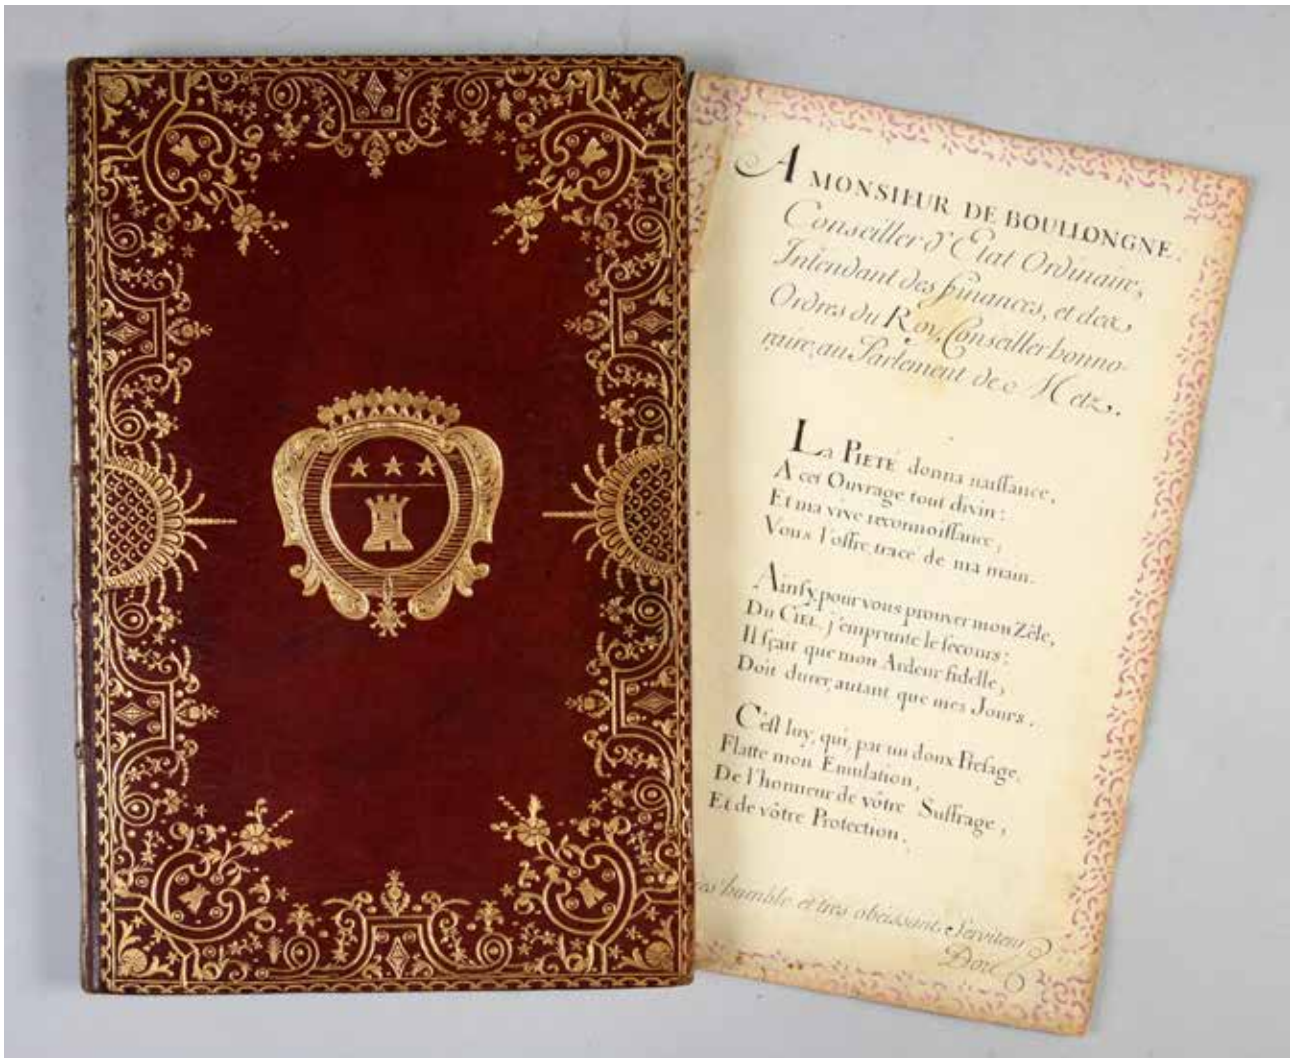 A MONSIEUR DE BOULLONGNE.
Conseiller d'Etat Ordinaire,
Intendant des finances, et des
Ordres du Roy, Conseiller honno-
raire, au Parlement de Metz.
La PIETÉ donna naissance,
A cet Ouvrage tout divin :
Et ma vive reconnoissance,
Vous l'offre, tracé de ma main.
Ainsy, pour vous prouver mon Zéle,
Du CIEL j'emprunte le secours :
Il sçait que mon Ardeur fidelle,
Doit durer, autant que mes Jours.
C'est luy, qui, par un doux Présage,
Flatte mon Emulation,
De l'honneur de vôtre Suffrage,
Et de vôtre Protection.
humble et tres obeissant Serviteur